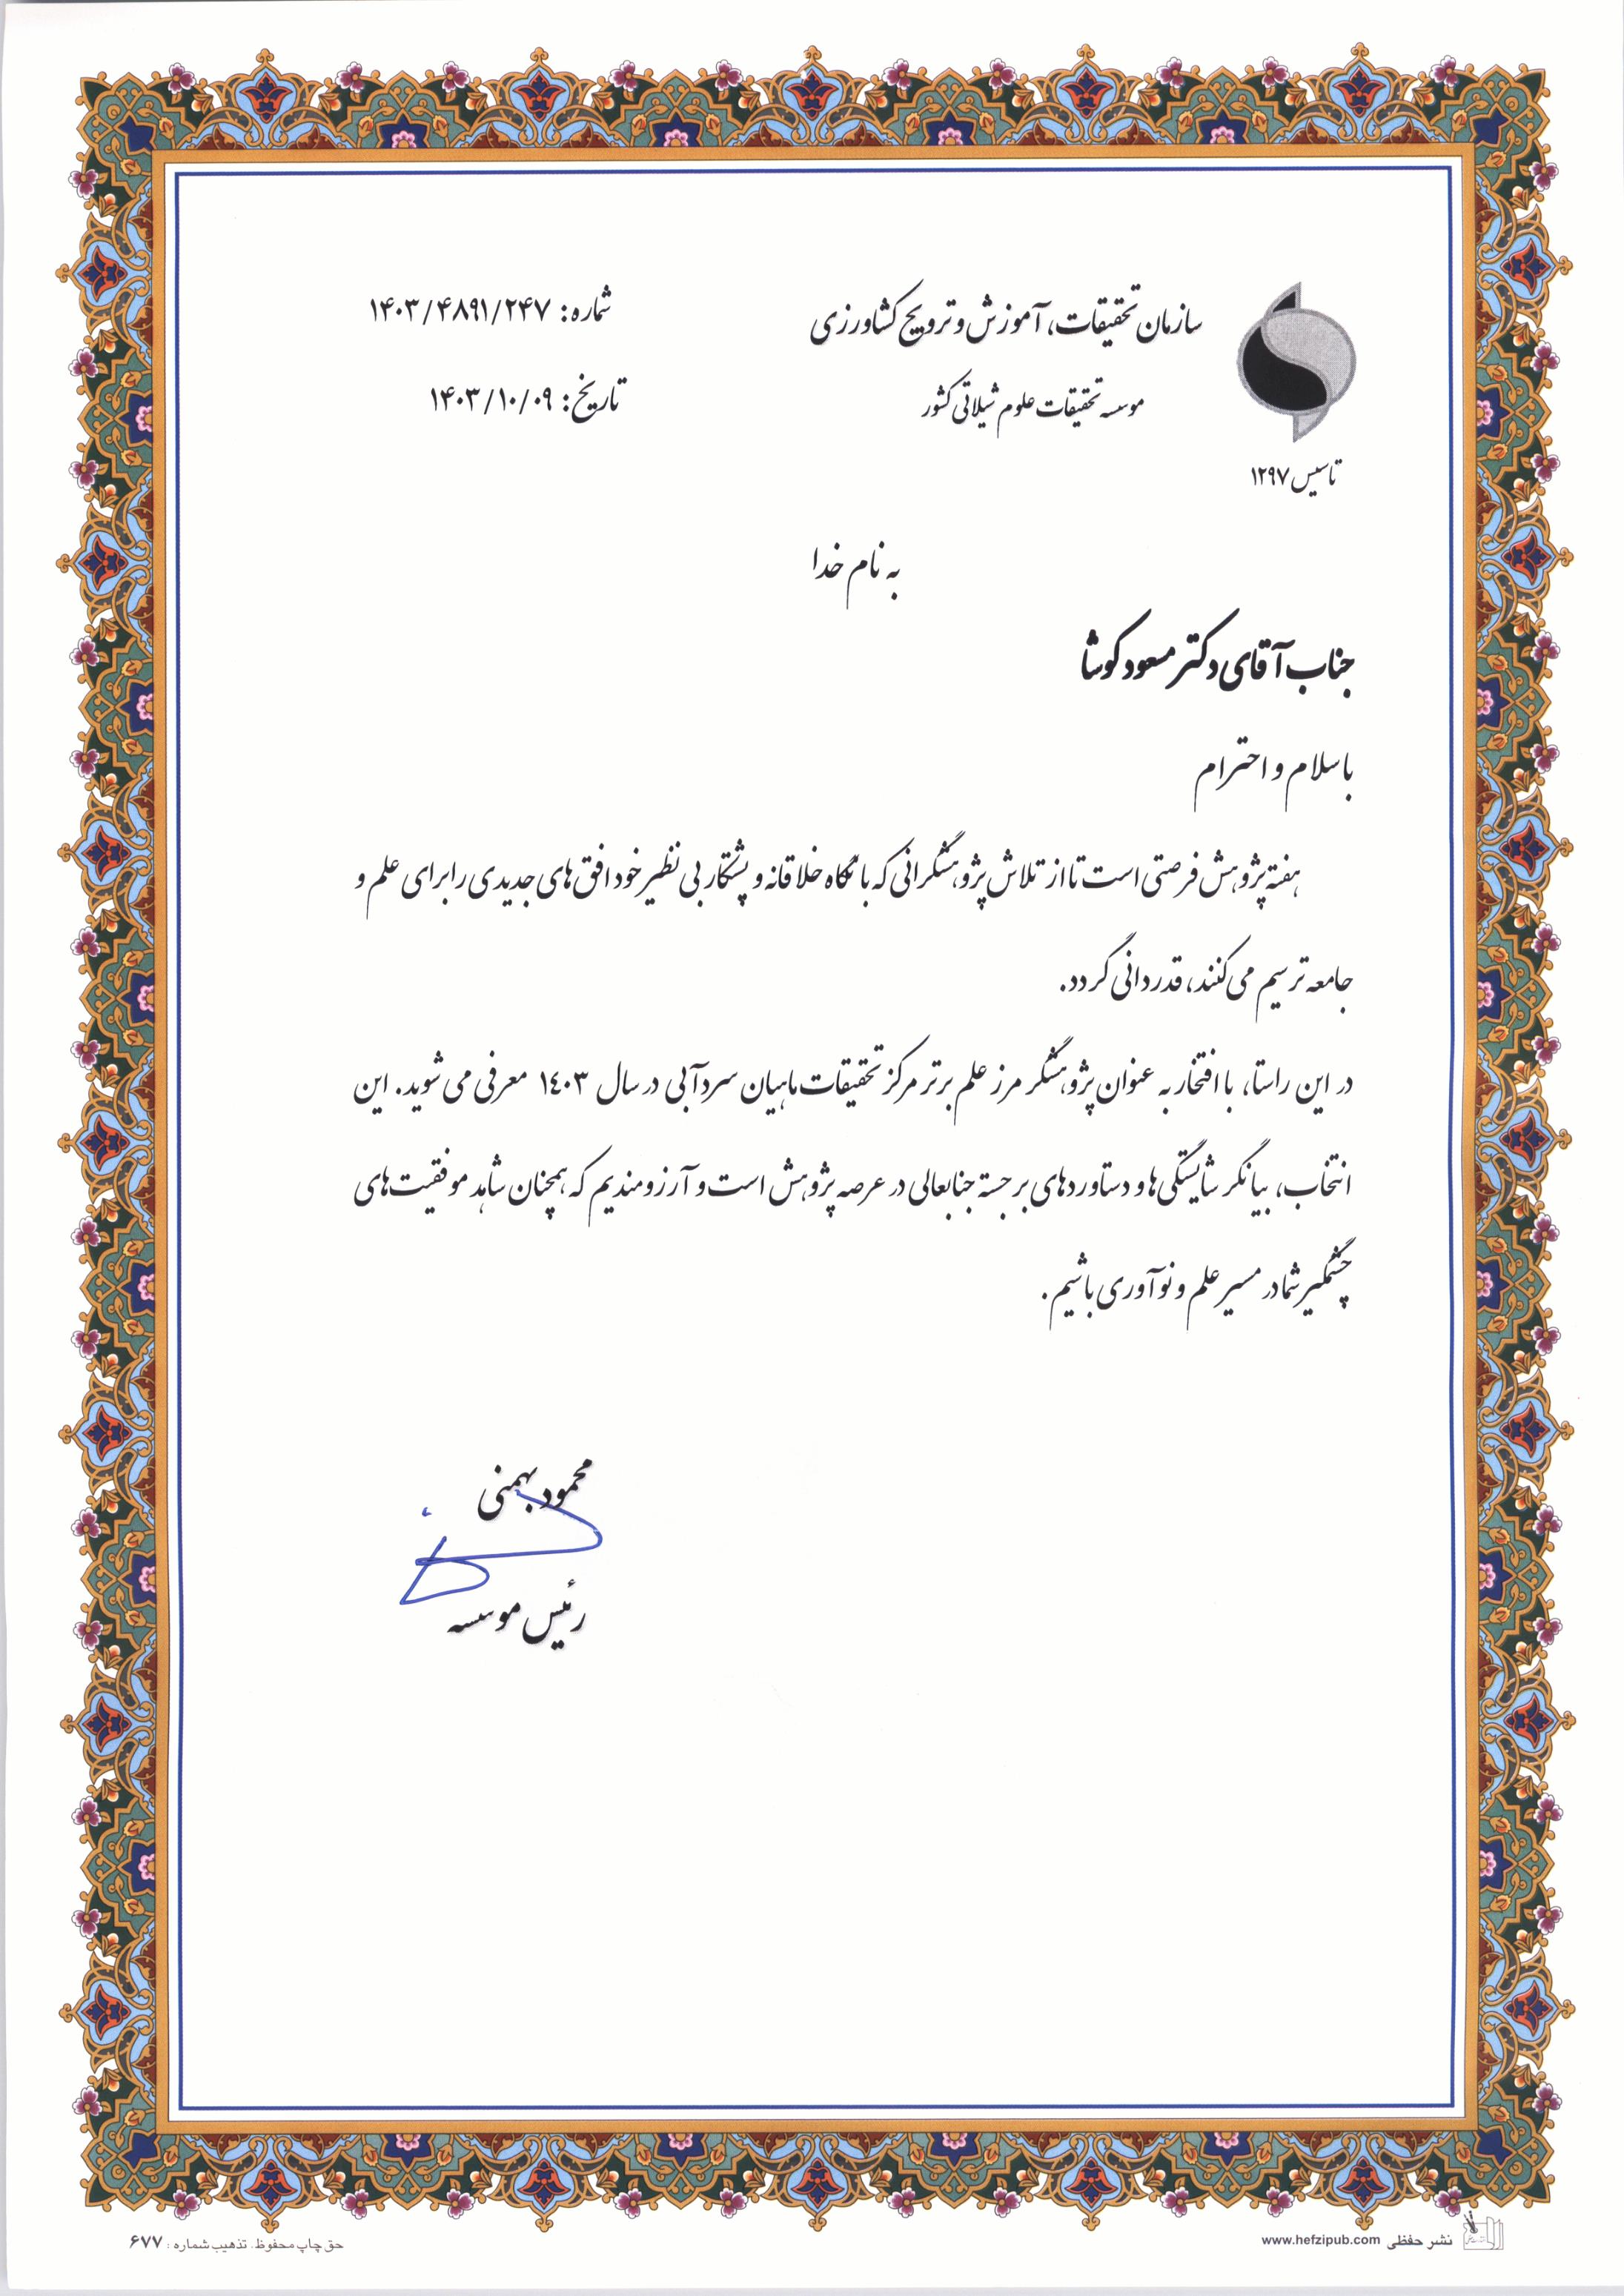 سازمان تحقیقات، آموزش و ترویج کشاورزی
موسسه تحقیقات علوم شیلاتی کشور
تاسیس ۱۲۹۷
شماره: ۱۴۰۳/۴۸۹۱/۲۴۷
تاریخ: ۱۴۰۳/۱۰/۰۹
به نام خدا
جناب آقای دکتر مسعود کوشا
با سلام و احترام
هفته پژوهش فرصتی است تا از تلاش پژوهشگرانی که با نگاه خلاقانه و پشتکار بی نظیر خود افق های جدیدی را برای علم و
جامعه ترسیم می کنند، قدردانی گردد.
در این راستا، با افتخار به عنوان پژوهشگر مرز علم برتر مرکز تحقیقات ماهیان سردآبی در سال ۱۴۰۳ معرفی می شوید. این
انتخاب، بیانگر شایستگی ها و دستاوردهای برجسته جنابعالی در عرصه پژوهش است و آرزومندیم که همچنان شاهد موفقیت های
چشمگیر شما در مسیر علم و نوآوری باشیم.
محمود بهمنی
رئیس موسسه
حق چاپ محفوظ. تذهیب شماره: ۶۷۷
نشر حفظی www.hefzipub.com